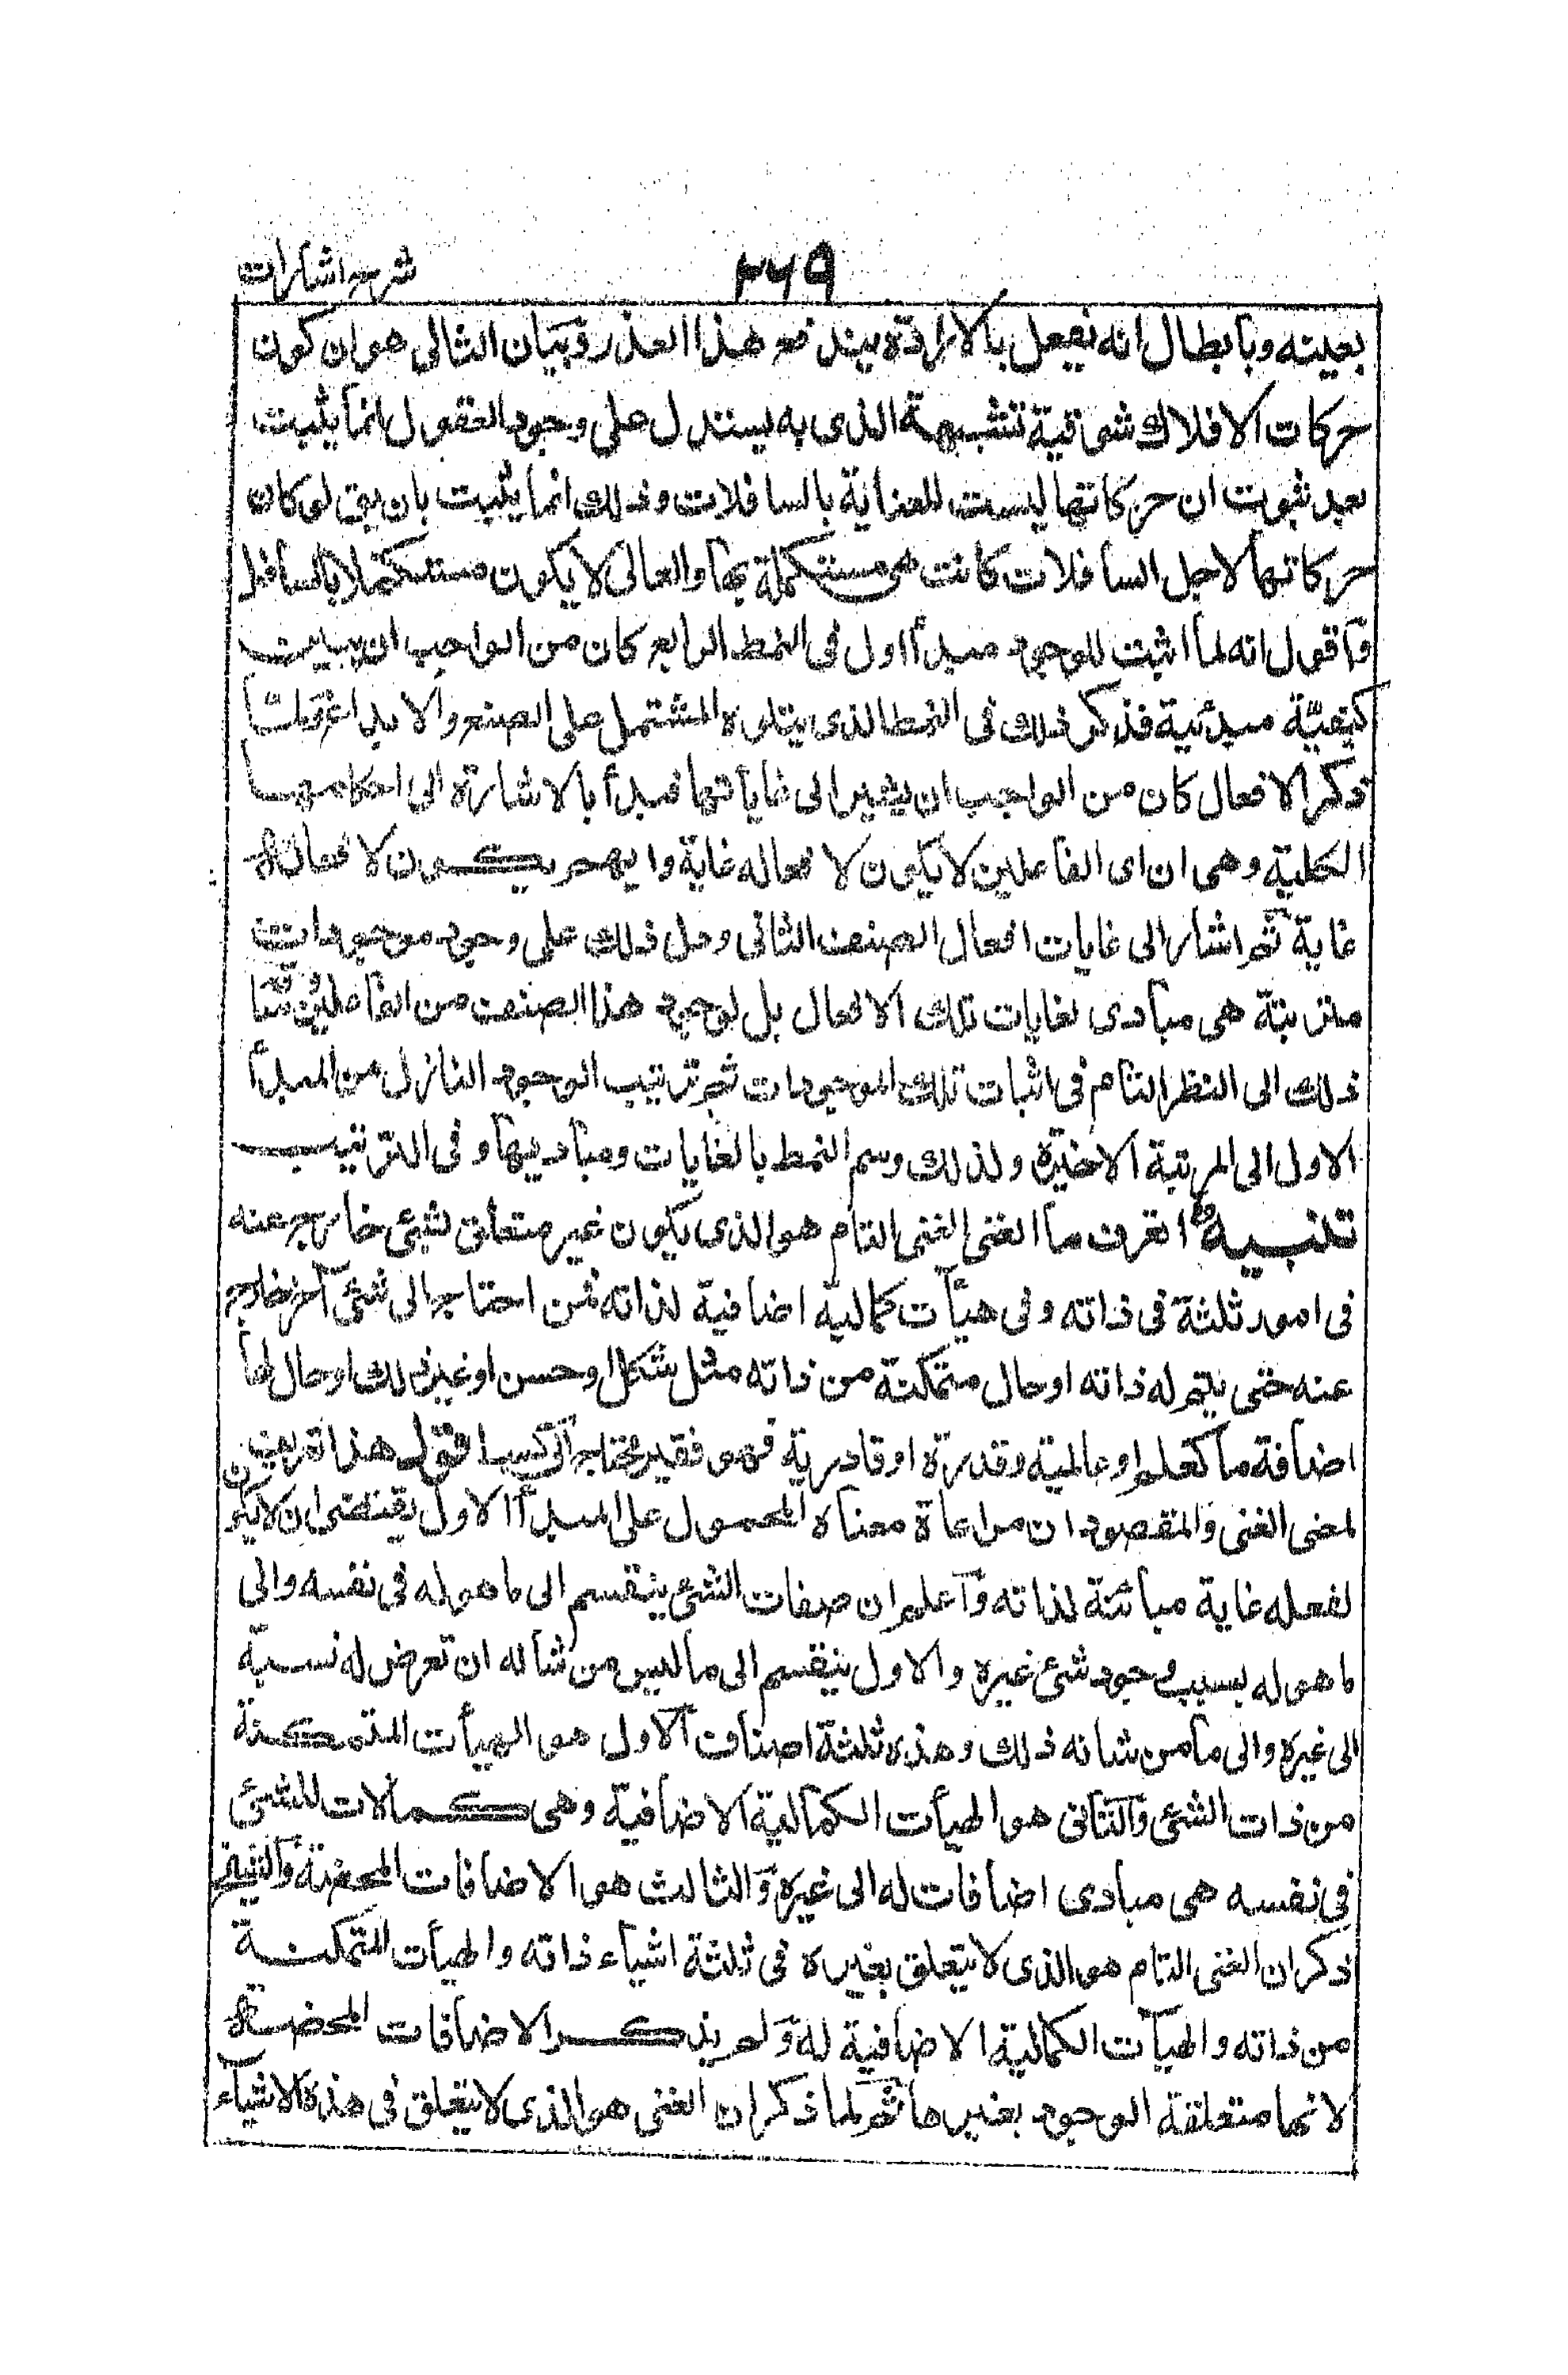 شرح اشارات
٢٦٩
بعينه وبابطال انه يفعل بالارادة يندفع هذا العذر وبيان الثالى هو ان كون
حركات الافلاك شوقية تشبهية الذى به يستدل على وجود العقول انما يثبت
بعد ثبوت ان حركاتها ليست للعناية بالسافلات وذلك انما يثبت بان يق لو كان
حركاتها لاجل السافلات كانت هى مستكملة بها والعالى لا يكون مستكملا بالسافل
واقول انه لما اثبت للوجود مبدأ اول فى النمط الرابع كان من الواجب ان يبين
كيفيّة مبدئية فذكر ذلك فى النمط الذى يتلوه المشتمل على الصنع والابداع ولما
ذكر الافعال كان من الواجب ان يشير الى غاياتها فبدأ بالاشارة الى احكامها
الكلية وهى ان اى الفاعلين لا يكون لا فعاله غاية وايهم يكون لافعاله
غاية ثم اشار الى غايات افعال الصنف الثانى ودل ذلك على وجود موجودات
مترتبة هى مبادى لغايات تلك الافعال بل لوجود هذا الصنف من الفاعلين فساقه
ذلك الى النظر التام فى اثبات تلك الموجودات ثم ترتيب الوجود النازل من المبدأ
الاول الى المرتبة الاخيرة ولذلك وسم النمط بالغايات ومباديها وفى الترتيب
تنبيه اتعرف ما الغنى الغنى التام هو الذى يكون غير متعلق بشيئ خارج عنه
فى امور ثلثة فى ذاته وفى هيأت كمالية اضافية لذاته فمن احتاج الى شئ آخر خارج
عنه حتى يتم له ذاته او حال متمكنة من ذاته مثل شكل او حسن او غير ذلك او حال لها
اضافة ما كعلم او عالمية وقدرة او قادرية فهو فقير محتاج الى كسب اقول هذا تعريف
لمعنى الغنى والمقصود ان مراعاة معناه المحمول على المبدأ الاول يقتضى ان لا يكون
لفعله غاية مبائنة لذاته واعلم ان صفات الشئ ينقسم الى ما هو له فى نفسه والى
ما هو له بسبب وجود شئ غيره والاول ينقسم الى ما ليس من شانه ان تعرض له نسبة
الى غيره والى ما من شانه ذلك وهذه ثلثة اصناف الاول هو الهيأت المتمكنة
من ذات الشئ والثانى هو الهيأت الكمالية الاضافية وهى كمالات للشئ
فى نفسه هى مبادى اضافات له الى غيره والثالث هو الاضافات المحضة والشيخ
ذكر ان الغنى التام هو الذى لا يتعلق بغيره فى ثلثة اشياء ذاته والهيأت المتمكنة
من ذاته والهيآت الكمالية الاضافية له ولم يذكر الاضافات المحضة
لانها متعلقة الوجود بغيرها ثم لما ذكر ان الغنى هو الذى لا يتعلق فى هذه الاشياء